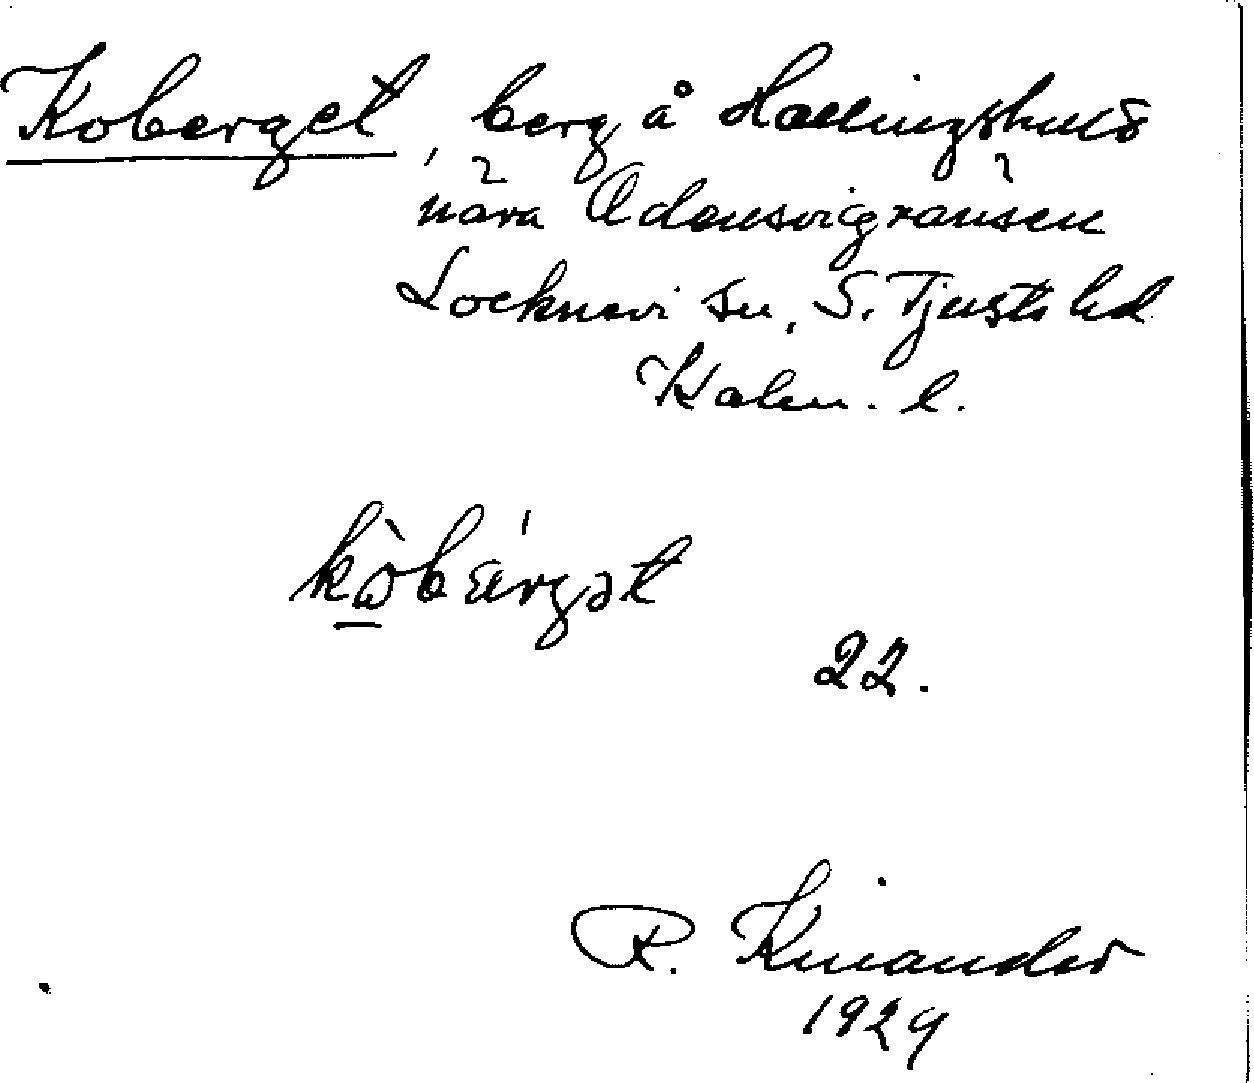 Koberget, berg å Hallingshults
nära Odensvigränsen
Locknevi sn, S. Tjusts hd
Kalm. l.
kὼ̲bärgət
22.
R. Kinander
1929